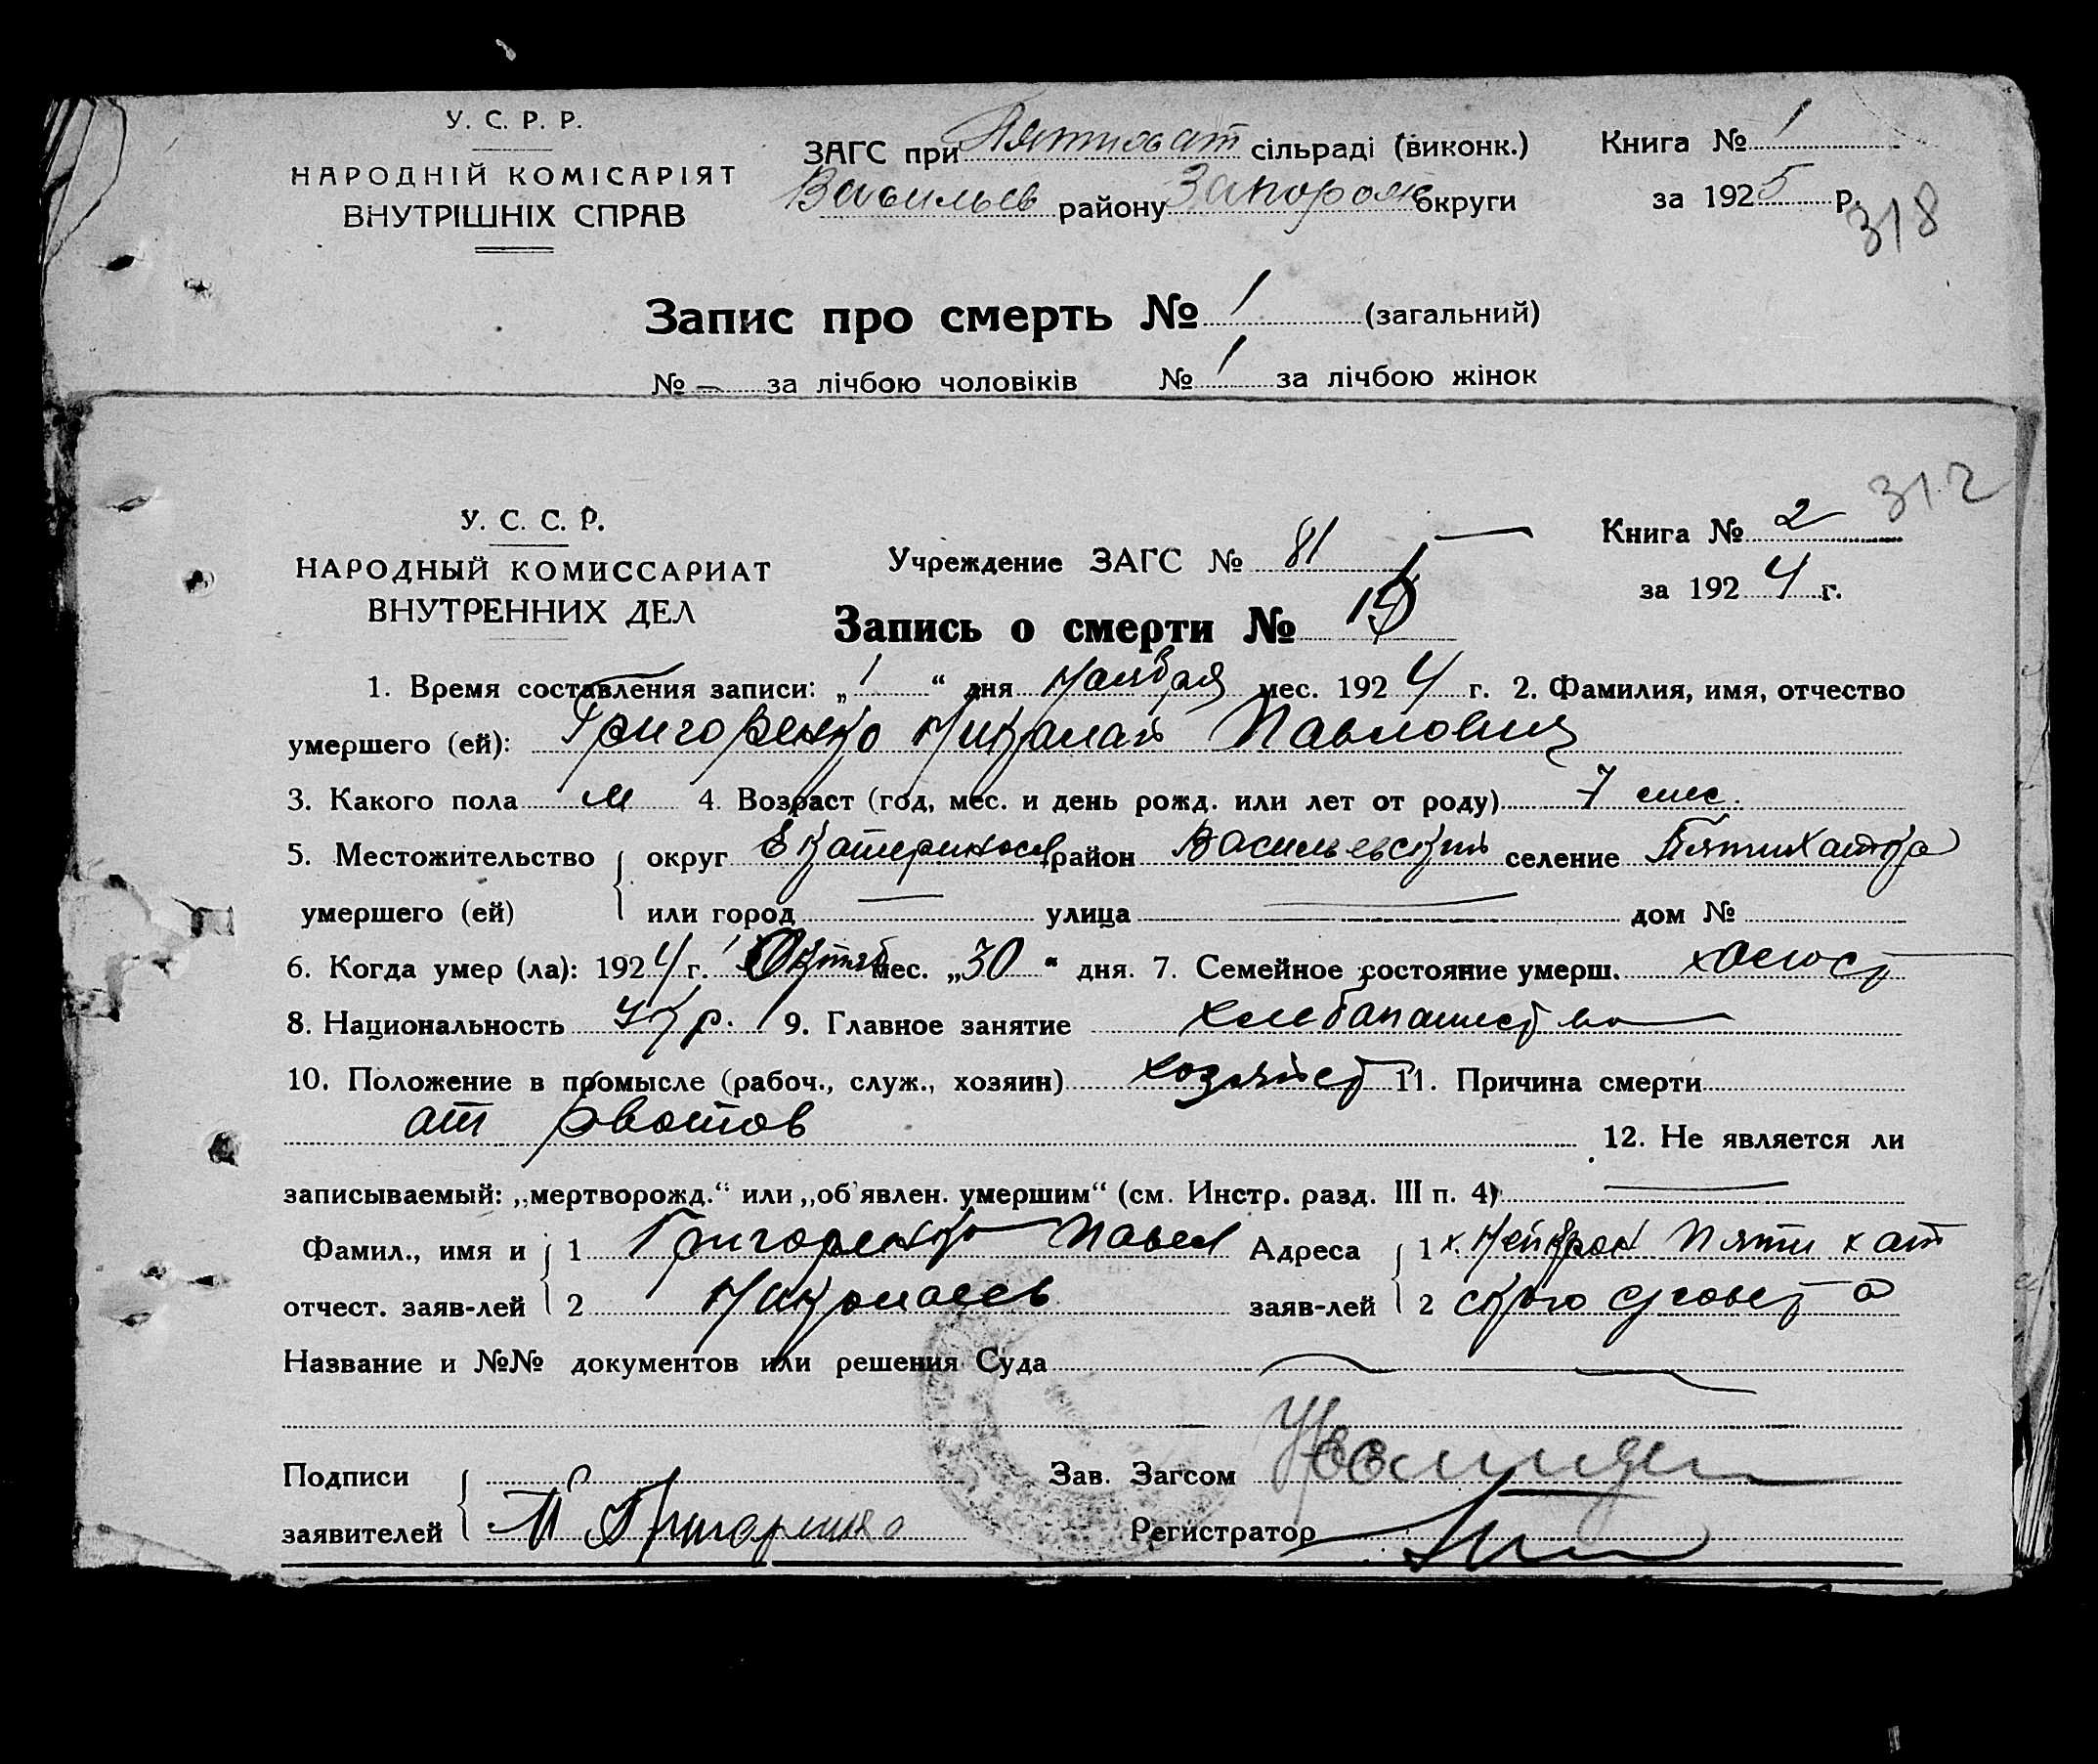 У. С. Р. Р.
НАРОДНІЙ КОМІСАРІЯТ
ВНУТРІШНІХ СПРАВ
ЗАГС при Пятихат сільраді (виконк.)
Васильев району Запорож округи
Книга № 1
за 1925 р.
318
Запис про смерть № 1 (загальний)
№ — за лічбою чоловіків № 1 за лічбою жінок
312
У. С. С. Р.
НАРОДНЫЙ КОМИССАРИАТ
ВНУТРЕННИХ ДЕЛ
Учреждение ЗАГС № 81
Книга № 2
за 1924 г.
Запись о смерти № 15
1. Время составления записи: „1“ дня Наября мес. 1924 г. 2. Фамилия, имя, отчество
умершего (ей): Григоренко Никалай Павлович
3. Какого пола м 4. Возраст (год, мес. и день рожд. или лет от роду) 7 мес.
5. Местожительство округ Екатеринослав район Васильевский селение Пятихатка
умершего (ей) или город — улица — дом №
6. Когда умер (ла): 1924 г. Октяб мес. „30“ дня. 7. Семейное состояние умерш. холост
8. Национальность Укр. 9. Главное занятие хлебапашество
10. Положение в промысле (рабоч., служ., хозяин) хозяйст 11. Причина смерти
ат рвотов 12. Не является ли
записываемый: „мертворожд.“ или „об'явлен. умершим“ (см. Инстр. разд. III п. 4) —
Фамил., имя и 1 Григоренко Павел Адреса 1 х. Пяти хат
отчест. заяв-лей 2 Николаев заяв-лей 2 ского совета
Название и №№ документов или решения Суда —
Подписи Зав. Загсом
заявителей П Григоренко Регистратор